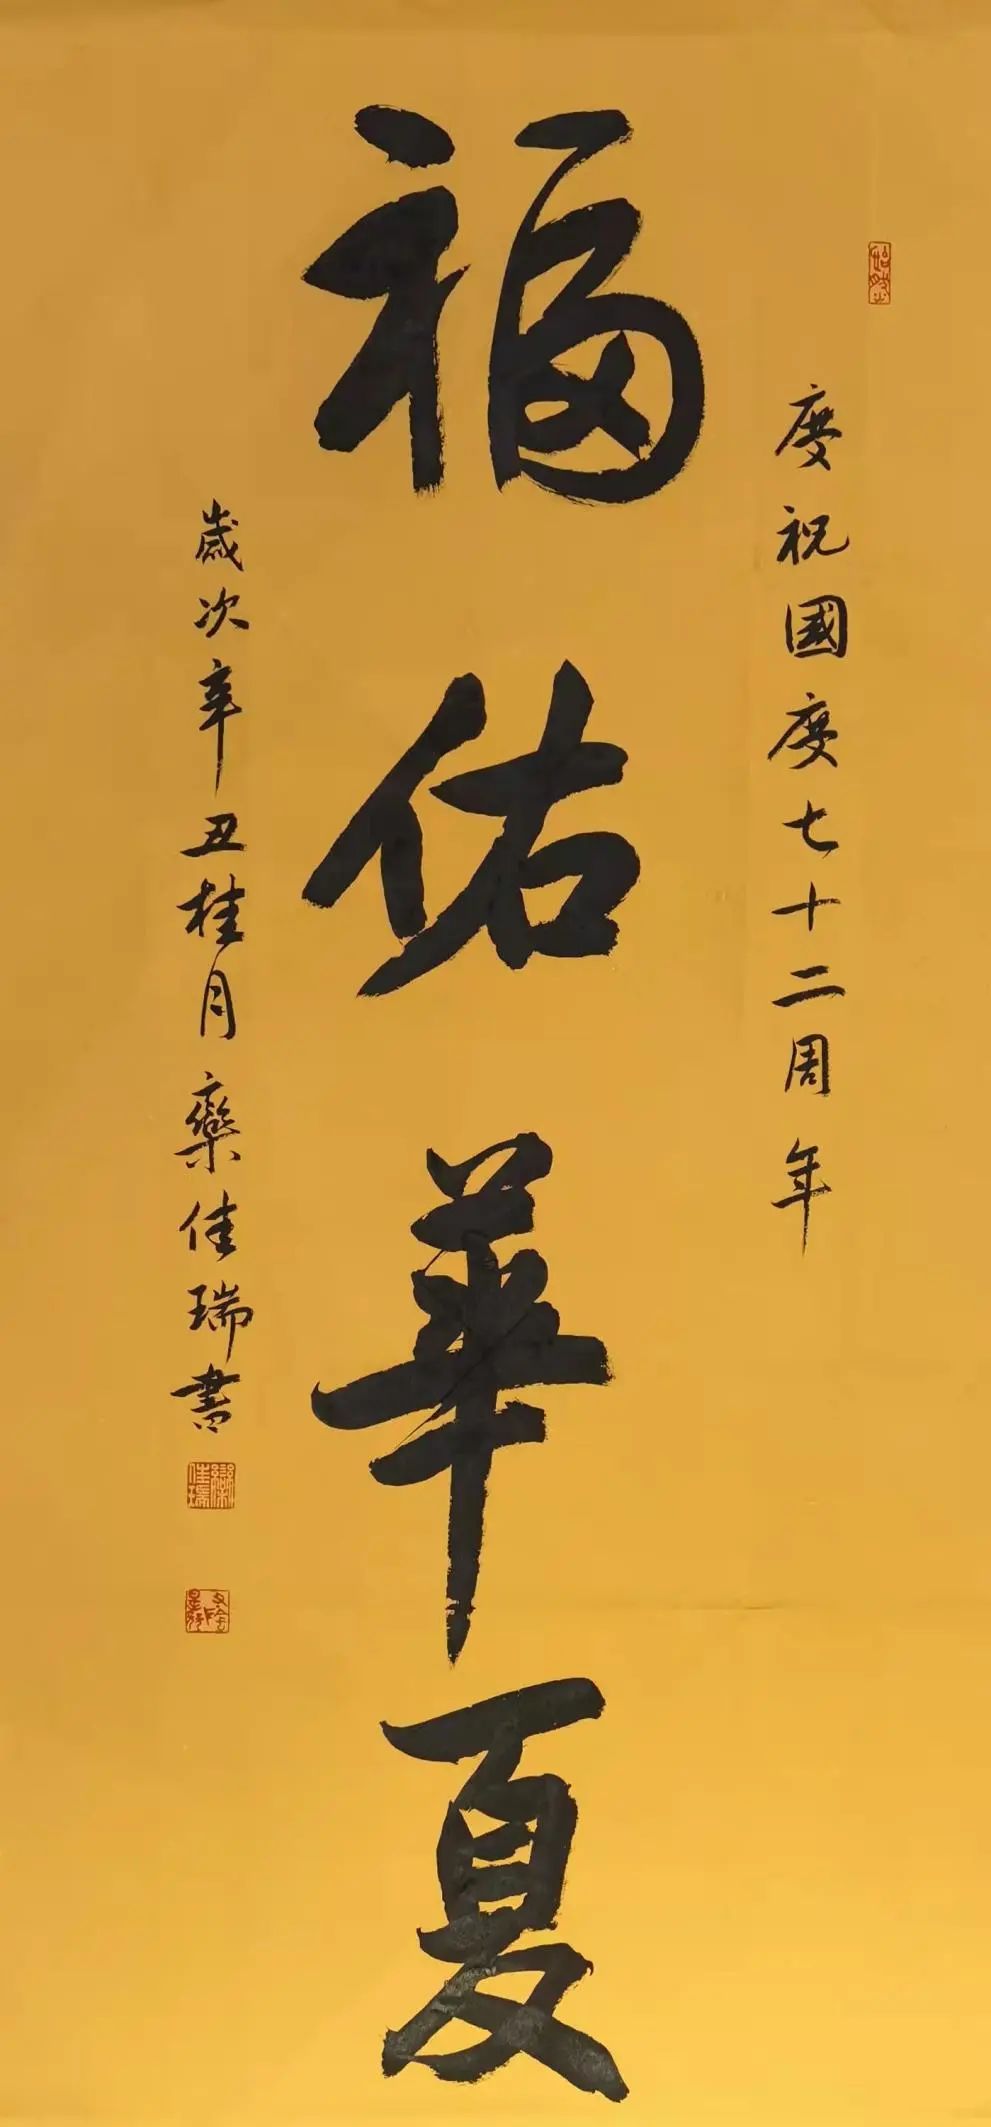 慶祝國慶七十二周年
福佑華夏
歲次辛丑桂月欒佳瑞書
欒佳瑞